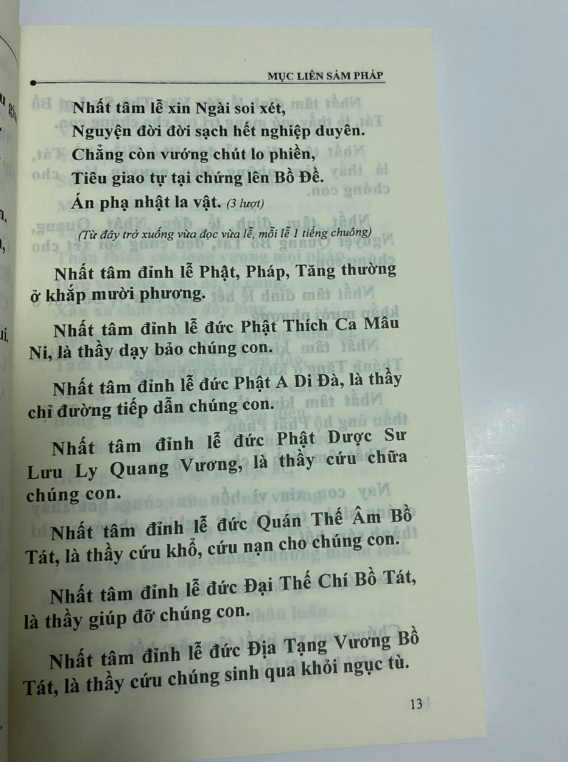 MỤC LIÊN SÁM PHÁP
Nhất tâm lễ xin Ngài soi xét,
Nguyện đời đời sạch hết nghiệp duyên.
Chẳng còn vướng chút lo phiền,
Tiêu giao tự tại chứng lên Bồ Đề.
Án phạ nhật la vật. (3 lượt)
(Từ đây trở xuống vừa đọc vừa lễ, mỗi lễ 1 tiếng chuông)
Nhất tâm đỉnh lễ Phật, Pháp, Tăng thường
ở khắp mười phương.
Nhất tâm đỉnh lễ đức Phật Thích Ca Mâu
Ni, là thầy dạy bảo chúng con.
Nhất tâm đỉnh lễ đức Phật A Di Đà, là thầy
chỉ đường tiếp dẫn chúng con.
Nhất tâm đỉnh lễ đức Phật Dược Sư
Lưu Ly Quang Vương, là thầy cứu chữa
chúng con.
Nhất tâm đỉnh lễ đức Quán Thế Âm Bồ
Tát, là thầy cứu khổ, cứu nạn cho chúng con.
Nhất tâm đỉnh lễ đức Đại Thế Chí Bồ Tát,
là thầy giúp đỡ chúng con.
Nhất tâm đỉnh lễ đức Địa Tạng Vương Bồ
Tát, là thầy cứu chúng sinh qua khỏi ngục tù.
13